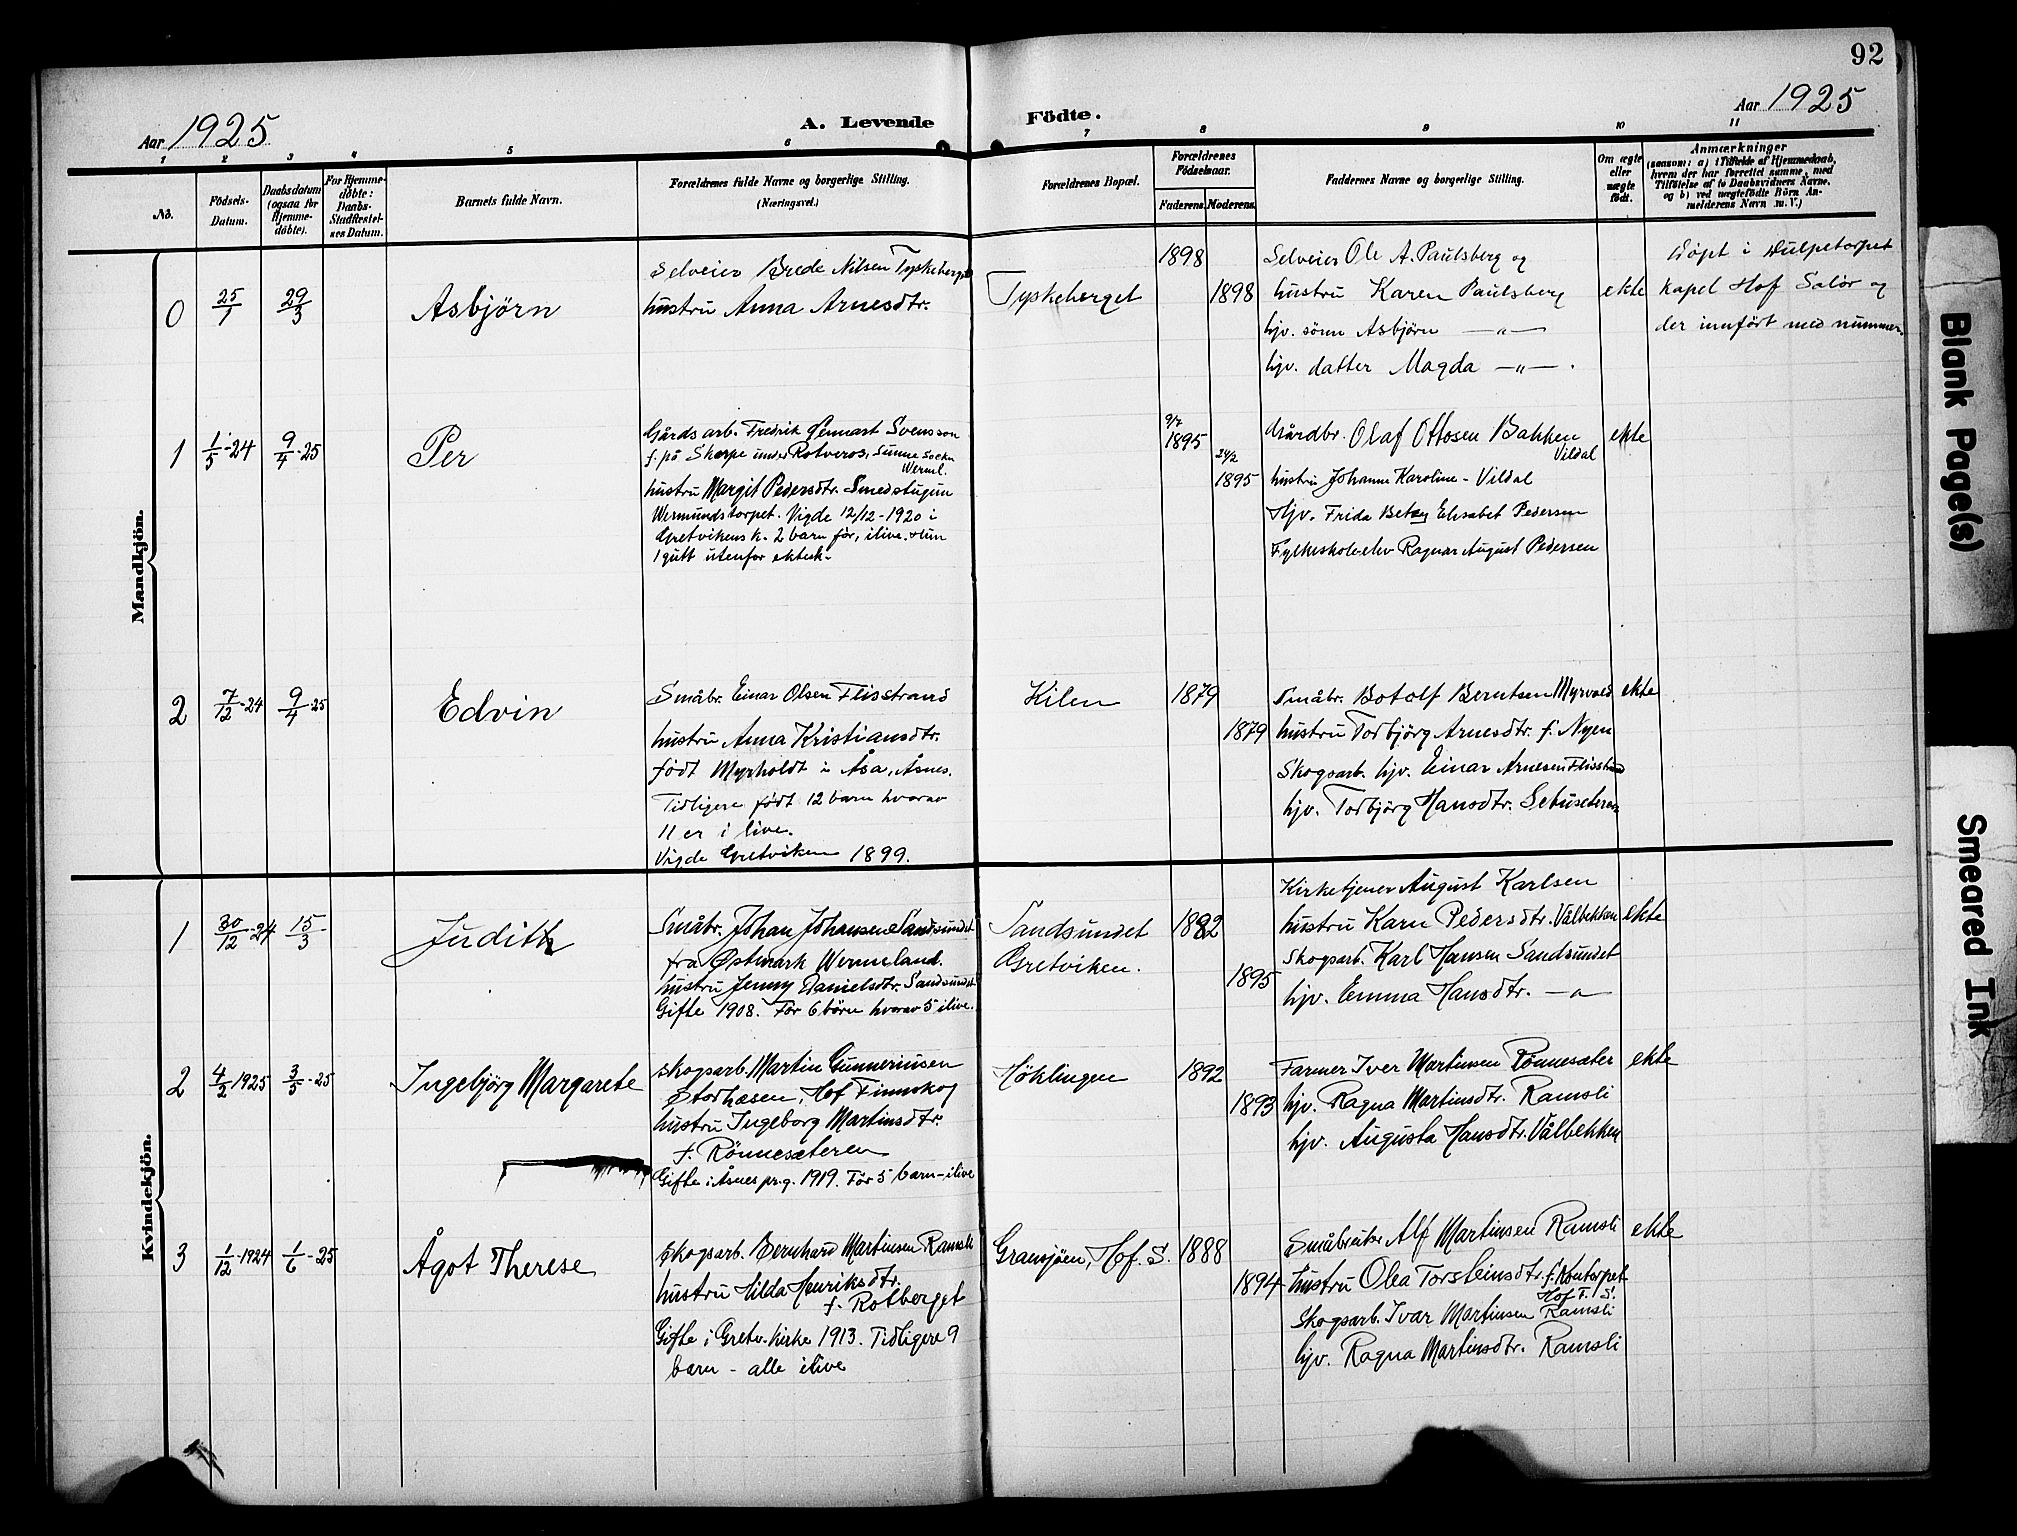 92
Aar 1925
A. Levende
Födte.
Aar 1925
1 2 3 4 5 6 7 8 9 10 11
No.
Födsels-
Datum.
Daabsdatum
(ogsaa for
Hjemme-
döbte).
For Hjemme-
döbte:
Daabs-
Stadfæstel-
ses Datum.
Barnets fulde Navn.
Forældrenes fulde Navne og borgerlige Stilling.
(Næringsvei.)
Forældrenes Bopæl.
Forældrenes
Födselsaar.
Faderens.
Moderens.
Faddernes Navne og borgerlige Stilling.
Om ægte
eller
uægte
födt.
Anmærkninger
(saasom: a) i Tilfælde af Hjemmedaab,
hvem der har forrettet samme, med
Tilføielse af to Daabsvidners Navne,
og b) ved uægtefödte Börn An-
melderens Navn m. V.)
Mandkjön.
0
25/1
29/3
Asbjörn
Selveier Brede Nilsen Tyskeberget
hustru Anna Arnesdtr.
Tyskeberget
1898
1898
Selveier Ole A. Paulsberg og
hustru Karen Paulsberg
hjv. sönn Asbjörn —"—
hjv. datter Magda —"—.
ekte
Döpt i Dulpetorpet
kapel Hof Solör og
der innfört med nummer.
1
1/5-24
9/4-25
Per
Gårdsarb. Fredrik Gennart Svensson
f. på Skarpe under Rotveros, Sunne Sockn
Werml.
hustru Margit Pedersdtr. Smedstugun
Wermundstorpet. Vigde 12/12-1920 i
Gretvikens k. 2 barn för, ilive. Hun
1 gutt utenfor ektesk.
9/7
1895
24/2
1895
Gårdbr. Olaf Ottosen Bakken
Vildal
hustru Johanne Karoline - Vildal
Hjv. Frida Betzy Elisabet Pedersen
Fylkeskoleelev Ragnar August Pedersen
ekte
2
7/12-24
9/4-25
Edvin
Småbr. Einar Olsen Flisstrand
hustru Anna Kristiansdtr.
födt Myrholdt i Åsa, Åsnes.
Tidligere födt 12 barn hvorav
11 er i live.
Vigde Gretviken 1899.
Kilen
1879
1879
Småbr. Botolf Berntsen Myrvold
hustru Torbjörg Arnesdtr. f. Nyen
Skogsarb. hjv. Einar Arnesen Flisstrand
hjv. Torbjörg Hansdtr. Sebuseteren
ekte
Kvindekjön.
1
30/12-24
15/3
Judith
Småbr. Johan Johansen Sandsundet
fra Östmark Wermeland.
hustru Jenny Danielsdtr. Sandsundet
Gifte 1908. För 6 börn hvorav 5 ilive.
Sandsundet
Gretviken.
1882
1895
Kirketjener August Karlsen
hustru Karn Pedersdtr. Vålbekken
Skogsarb. Karl Hansen Sandsundet
hjv. Emma Hansdtr. —"—
ekte
2
4/2-1925
3/5-25
Ingebjörg Margarete
Skogsarb. Martin Gunneriusen
Storhæsen, Hof Finnskog
hustru Ingeborg Martinsdtr.
f. Rönnesæteren
Gifte i Åsnes pr.g. 1919. För 5 barn - ilive
Höklingen
1892
1893
Farmer Iver Martinsen Rönnesæter
hjv. Ragna Martinsdtr. Ramsli
hjv. Augusta Hansdtr. Vålbekken
ekte
3
1/12-1924
1/6-25
Ågot Therese
Skogsarb. Bernhard Martinsen Ramsli
hustru Hilda Henriksdtr.
f. Rotberget
Gifte i Gretv. kirke 1913. Tidligere 9
barn - alle ilive
Gransjöen, Hof. S.
1888
1894
Småbruker Alf Martinsen Ramsli
hustru Olea Torsteinsdtr. f. Kontorpet
Hof F. S.
Skogsarb. Ivar Martinsen Ramsli
hjv. Ragna Martinsdtr. Ramsli
ekte
Blank Page(s)
Smeared Ink